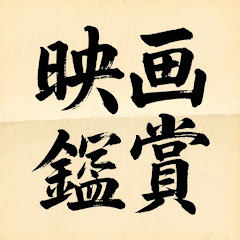 映画
鑑賞